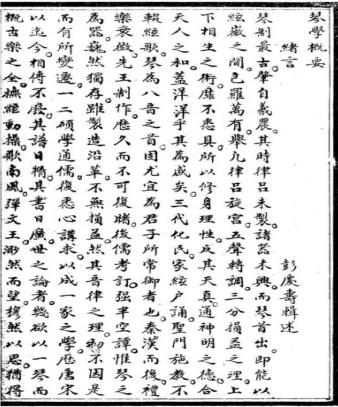 琴學概要
緒言
彭慶壽輯述
琴制最古肇自羲農其時律呂未製諸器未興而琴首出即能以
絃徽之間包羅萬有舉凡律呂旋宮五聲轉調三分損益之理上
下相生之術靡不悉具所以修身理性反其天真通神明之德合
天人之和蓋洋洋乎其為盛矣三代化民家絃戶誦聖門施教不
輟絃歌琴為八音之首固尤宜為君子所常御者也秦漢而後禮
樂衰微先王制作歷久而不可復睹後儒考訂強半空譚惟琴之
為器巍然獨存雖製造沿革不無損益然其音律之理初不因是
而有所變遷一二碩學通儒復悉心講求以成一家之學歷唐宋
以迄今相傳不廢其譜日積其書日廣世之論者幾欲以一琴而
概古樂之全撫絃動操歌南風彈文王渺然而望穆然以思猶得